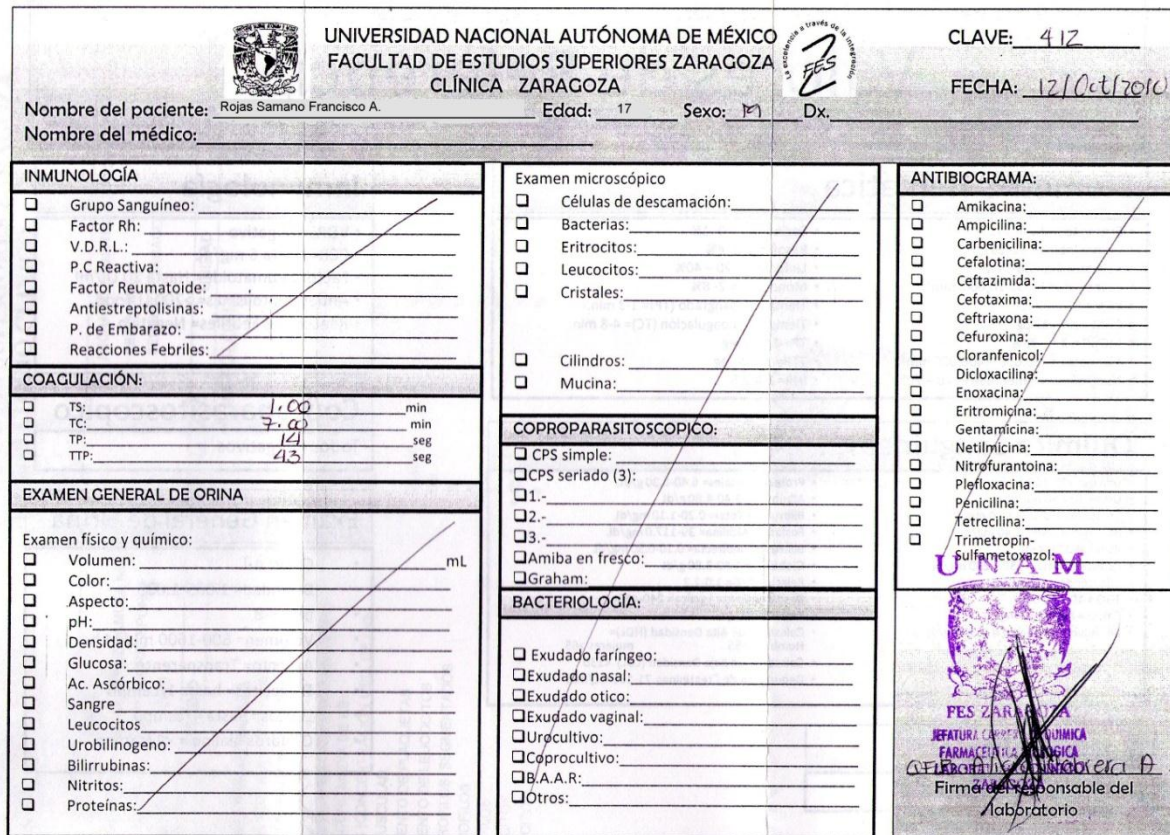 UNIVERSIDAD NACIONAL AUTÓNOMA DE MÉXICO
FACULTAD DE ESTUDIOS SUPERIORES ZARAGOZA
CLÍNICA ZARAGOZA
La excelencia a través de la integración
FES
Z
CLAVE: 412
FECHA: 12/Oct/2010
Nombre del paciente: Rojas Samano Francisco A. Edad: 17 Sexo: M Dx.
Nombre del médico:
INMUNOLOGÍA
Grupo Sanguíneo:
Factor Rh:
V.D.R.L.:
P.C Reactiva:
Factor Reumatoide:
Antiestreptolisinas:
P. de Embarazo:
Reacciones Febriles:
COAGULACIÓN:
TS: 1.00 min
TC: 7.00 min
TP: 14 seg
TTP: 43 seg
EXAMEN GENERAL DE ORINA
Examen físico y químico:
Volumen: mL
Color:
Aspecto:
pH:
Densidad:
Glucosa:
Ac. Ascórbico:
Sangre
Leucocitos
Urobilinogeno:
Bilirrubinas:
Nitritos:
Proteínas:
Examen microscópico
Células de descamación:
Bacterias:
Eritrocitos:
Leucocitos:
Cristales:
Cilindros:
Mucina:
COPROPARASITOSCOPICO:
CPS simple:
CPS seriado (3):
1.-
2.-
3.-
Amiba en fresco:
Graham:
BACTERIOLOGÍA:
Exudado faríngeo:
Exudado nasal:
Exudado otico:
Exudado vaginal:
Urocultivo:
Coprocultivo:
B.A.A.R:
Otros:
ANTIBIOGRAMA:
Amikacina:
Ampicilina:
Carbenicilina:
Cefalotina:
Ceftazimida:
Cefotaxima:
Ceftriaxona:
Cefuroxina:
Cloranfenicol:
Dicloxacilina:
Enoxacina:
Eritromicina:
Gentamicina:
Netilmicina:
Nitrofurantoina:
Plefloxacina:
Penicilina:
Tetrecilina:
Trimetropin-
Sulfametoxazol:
U N A M
FES ZARAGOZA
JEFATURA CARRERA QUIMICA
FARMACEUTICA BIOLOGICA
ZARAGOZA
Firma del responsable del
laboratorio